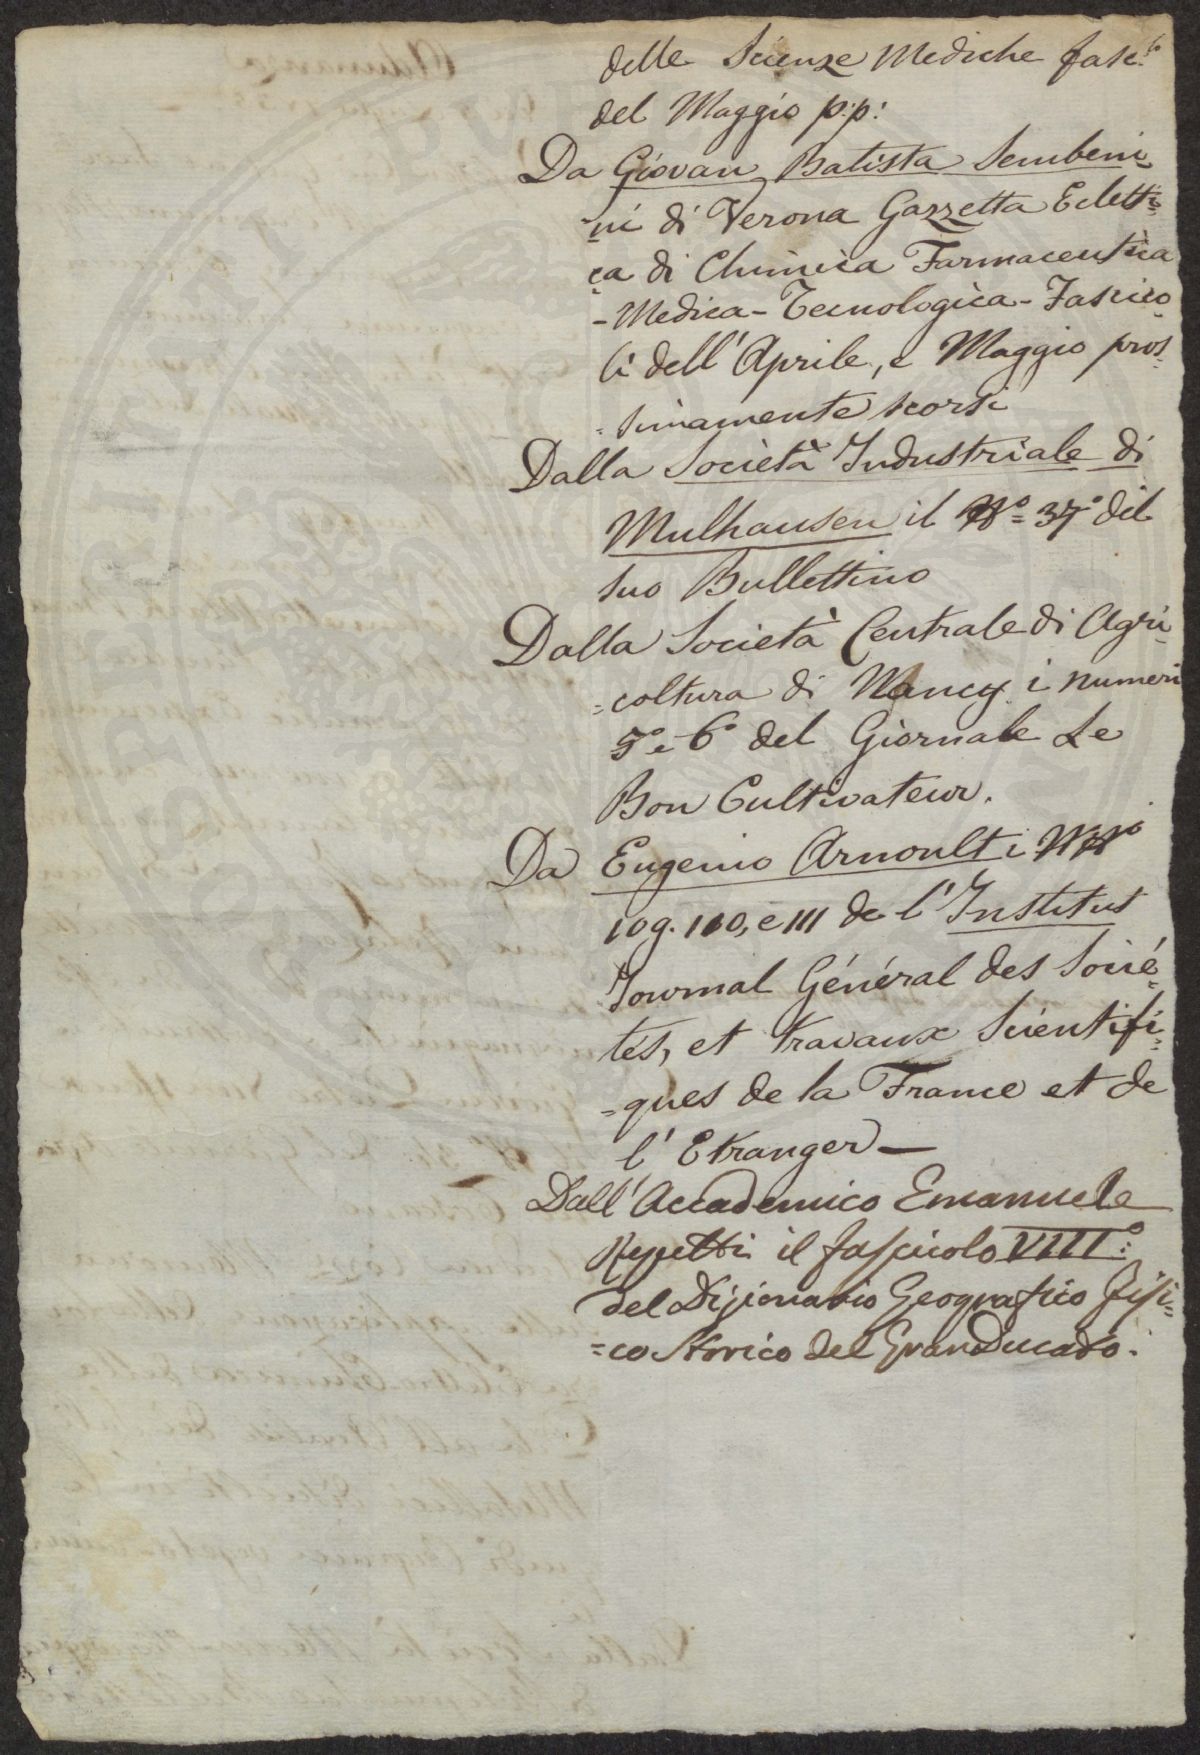 delle Scienze Mediche fasc.º
del Maggio p:p:
Da Giovan Batista Sembeni
=ni di Verona Gazzetta Ecletti=
ca di Chimica Farmaceutica
- Medica - Tecnologica - Fascico
li dell'Aprile, e Maggio pros=
=simamente scorsi
Dalla Società Industriale di
Mulhausen il Nº= 37º del
suo Bullettino
Dalla Società Centrale di Agri=
=coltura di Nancy i numeri
5º e 6º del Giornale Le
Bon Cultivateur.
Da Eugenio Arnoult i NNⁱ
109. 110, e 111 de l'Institut
Journal Général des Socié=
tés, et travaux Scientifi=
=ques de la France et de
l'Etranger —
Dall'Accademico Emanuele
Repetti il fascicolo VIIIº:
del Dizionario Geografico Fisi=
=co Storico del GranDucato.